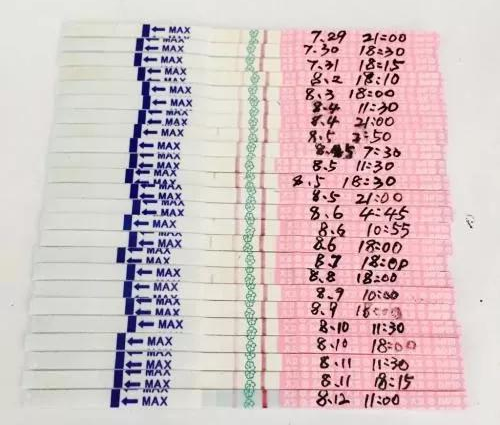 MAX 7.29 21:00
MAX 7.30 18:30
MAX 7.31 18:15
MAX 8.2 18:10
MAX 8.3 18:00
MAX 8.4 11:30
MAX 8.4 21:00
MAX 8.5 2:50
MAX 7:30
MAX 8.5 11:30
MAX 8.5 18:30
MAX 8.5 21:00
MAX 8.6 4:45
MAX 8.6 10:55
MAX 8.6 18:00
MAX 8.7 18:00
MAX 8.8 18:00
MAX 8.9 10:00
MAX 8.9 18:00
MAX 8.10 11:30
MAX 8.10 18:00
MAX 8.11 11:30
MAX 8.11 18:15
MAX 8.12 11:00